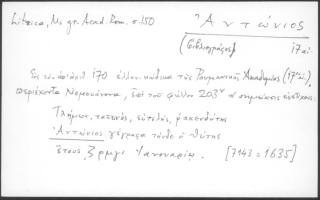 Litzica, Ms gr. Acad. Rom. σ. 150
Ἀντώνιος
(Βιβλιογράφος) 17 αι.
Εἰς τὸν ὑπ' ἀριθ. 170 ἑλλην. κώδικα τῆς Ρουμανικῆς Ἀκαδημίας (17ου αἰ.)
περιέχοντα Νομοκάνονα, ἐπὶ τοῦ φύλλου 203ν ἡ σημείωσις
Τλήμων, ταπεινός, εὐτελής, ῥακενδύτης
Ἀντώνιος γέγραφα τόνδε ὁ θύτης
Ἔτους ζρμγ Ἰανουαρίῳ. [7143 = 1635]